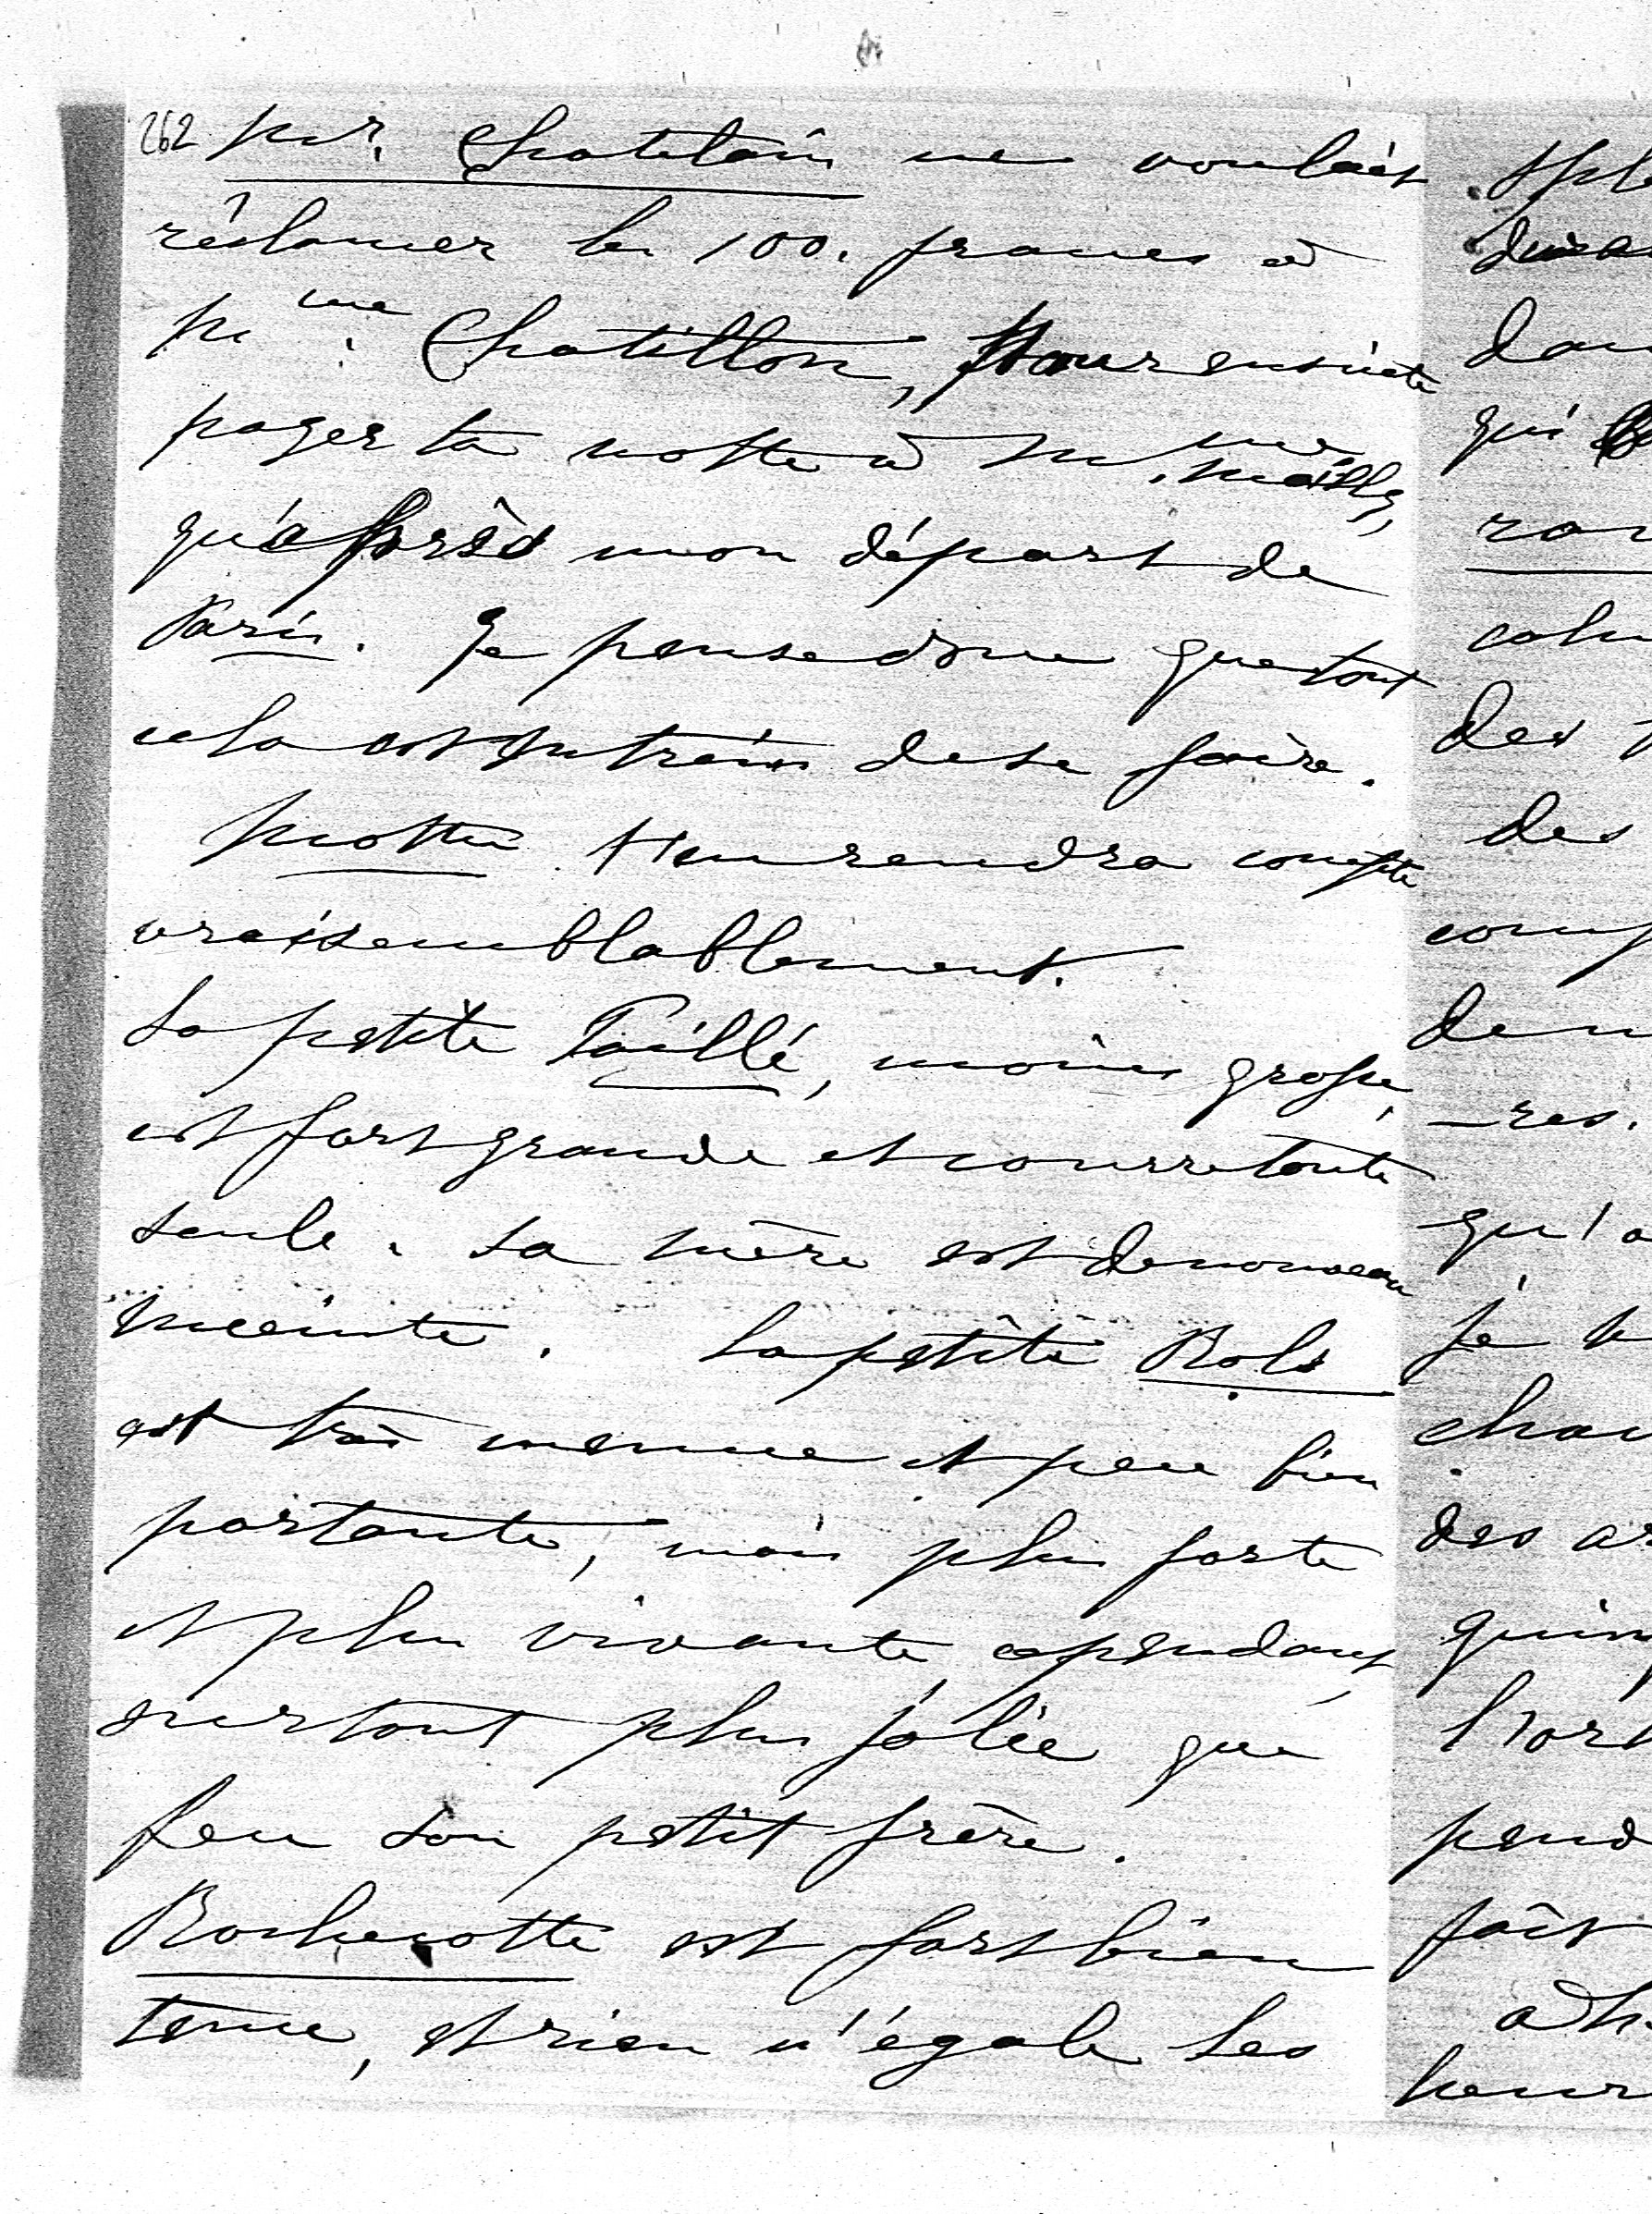 262 Mr. Chatelain ne voulait
réclamer les 100. francs à
Mme. Chatillon, pour ensuite
payer ta notte à Mme. Mailly,
qu'après mon départ de
Paris. Je pense donc que tout
cela est entrain de se faire.
Motte t'en rendra compte
vraisemblablement.
La petite Paillé, moins grosse,
est fort grande et courre toute
seule. Sa mère est de nouveau
enceinte. La petite Bols
est très menue et peu bien
portante, mais plus forte
et plus vivante cependant,
surtout plus jolie que
feu son petit frère.
Rochecotte est fort bien
tenue, et rien n'égale les
qui
des
des
-res.
qu'a
je
fait